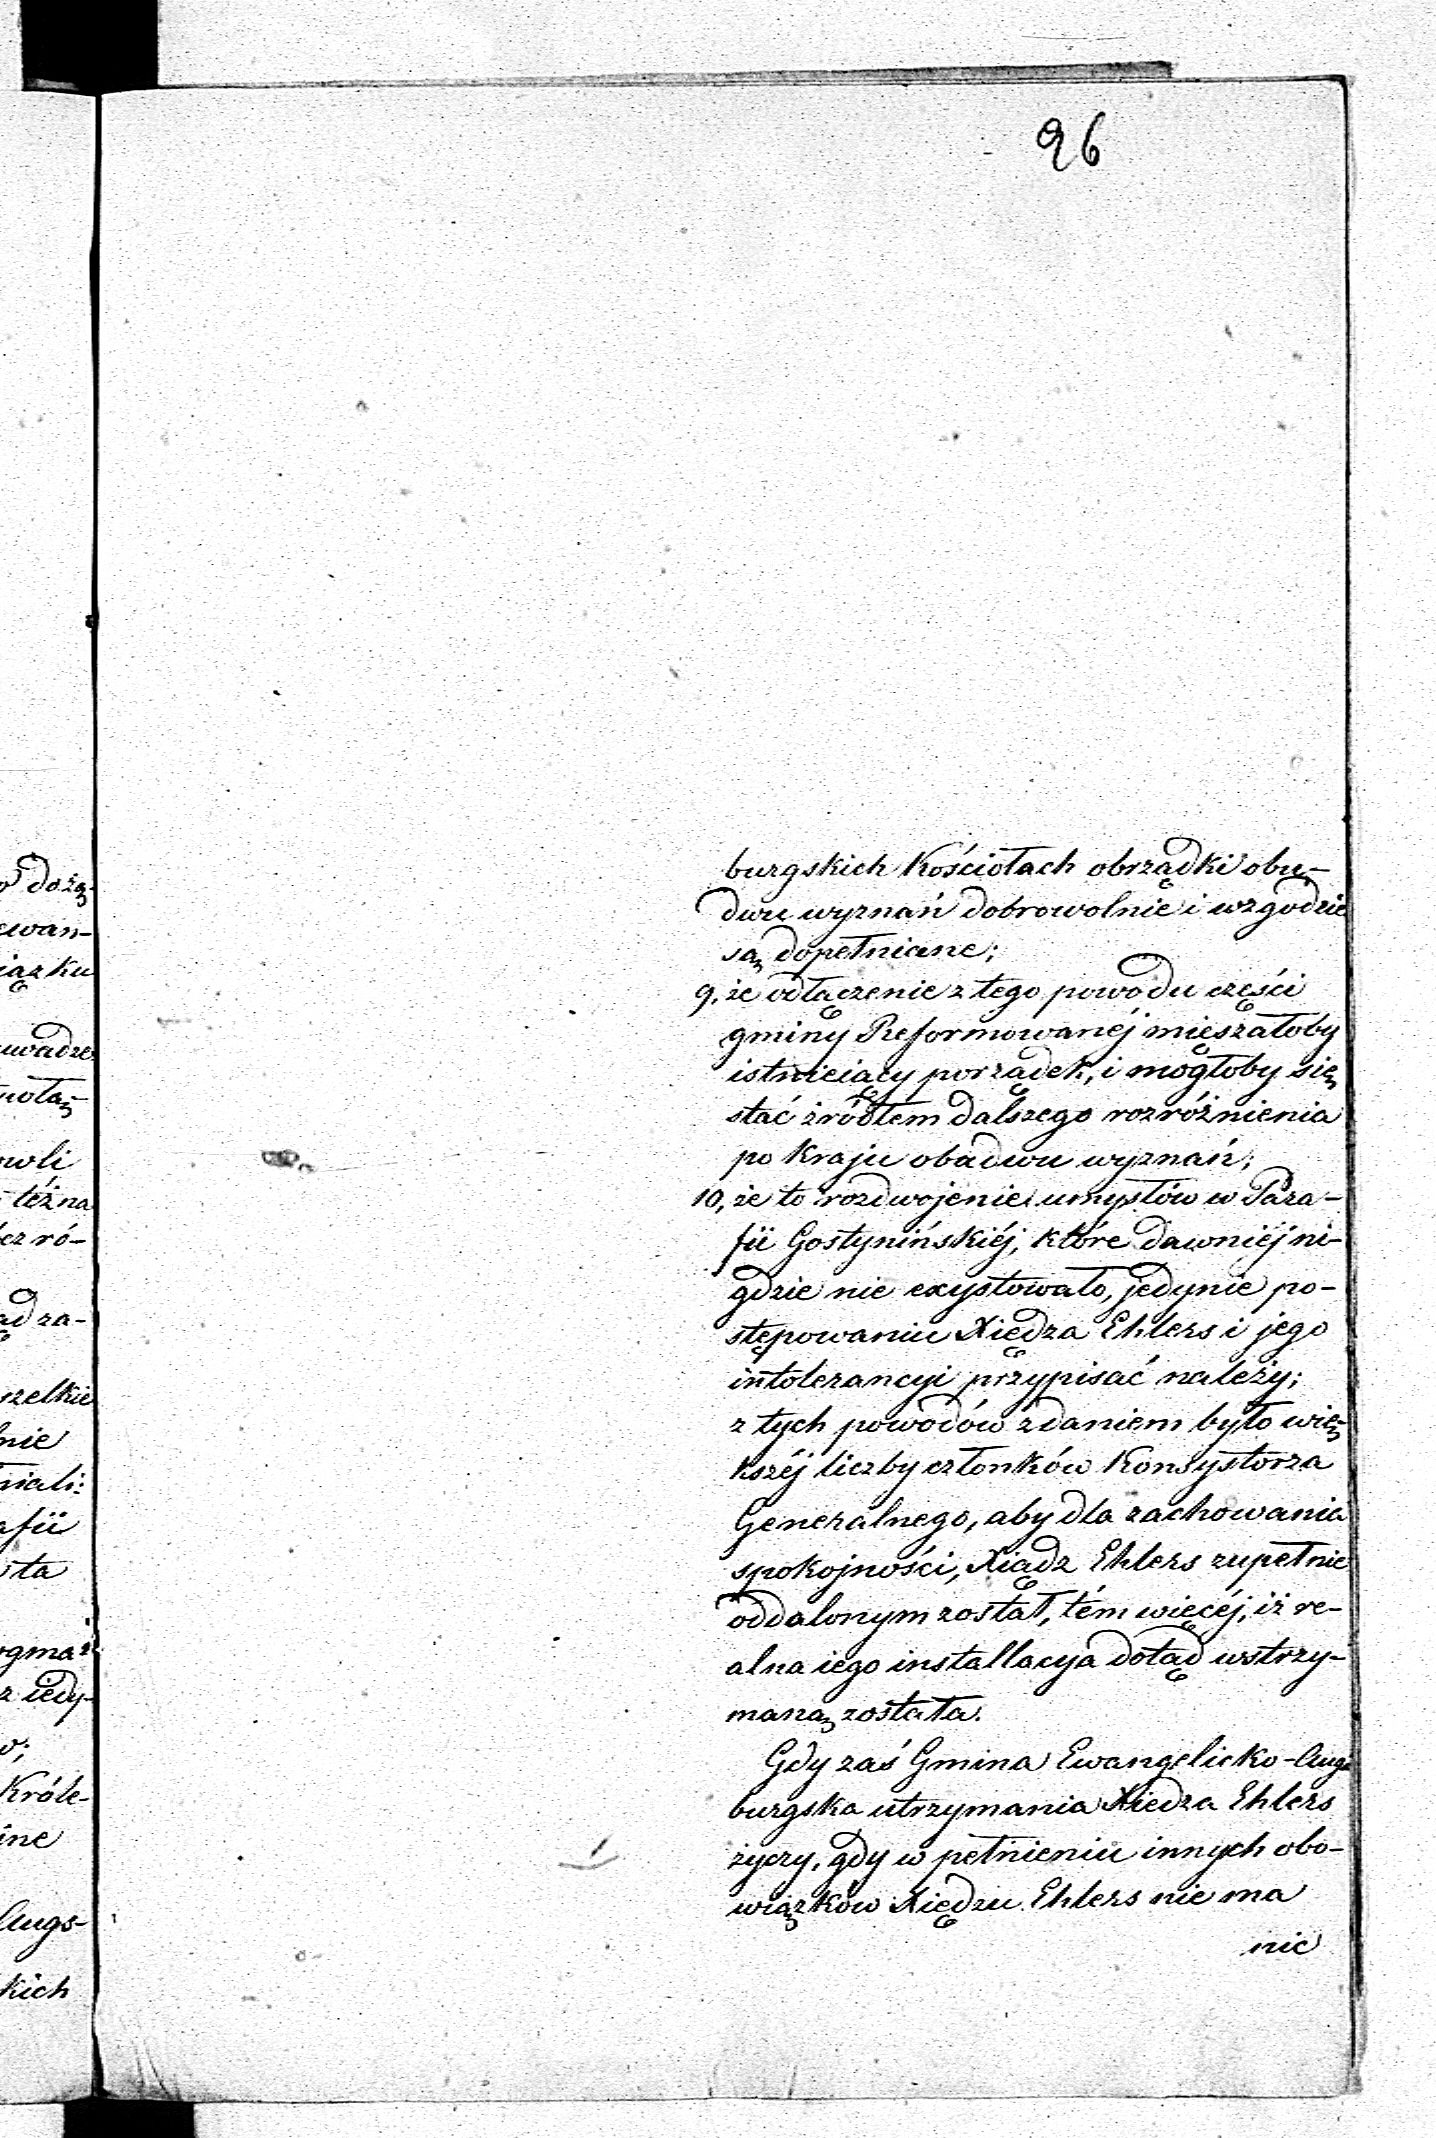 96
burgskich Kościołach obrządki obu-
dwu wyznań dobrowolnie i w zgodzie
są dopełniane;
9, że odłączenie z tego powodu części
gminy Reformowanéj mięszałoby
istnieiący porządek, i mogłoby się
stać źródłem dalszego rozróżnienia
po Kraju obadwu wyznań;
10, że to rozdwojenie umysłów w Para-
fii Gostynińskiéj, które dawniéj ni-
gdzie nie exystowało, jedynie po-
stępowaniu Xiędza Ehlers i jego
intolerancyi przypisać należy;
z tych powodów zdaniem było wię-
kszéj liczby członków Konsystorza
Generalnego, aby dla zachowania
spokojności, Xiądz Ehlers zupełnie
oddalonym został, tém więcéj, iż re-
alna iego installacya dotąd wstrzy-
maną została.
Gdy zaś Gmina Ewangelicko-Augs
burgska utrzymania Xiedza Ehlers
życzy, gdy w pełnieniu innych obo-
wiązków Xiędzu Ehlers nie ma
nic
dożą-
ewan-
iązku
uwadze
moli
też na
ez ró-
ąd za-
szelkie
nie
niali:
afii
sta
ogma-
z iedy-
o;
Króle-
ine
Augs-
kich